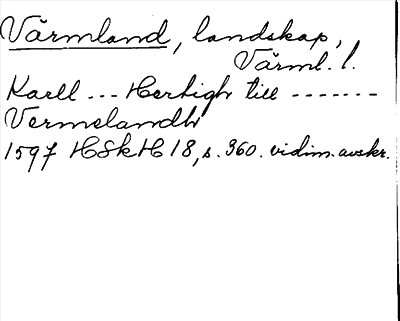 Värmland, landskap,
Värml. l.
Karll --- Hertigh till -------
Vermelandh
1597 HSkH 18, s. 360. vidim. avskr.